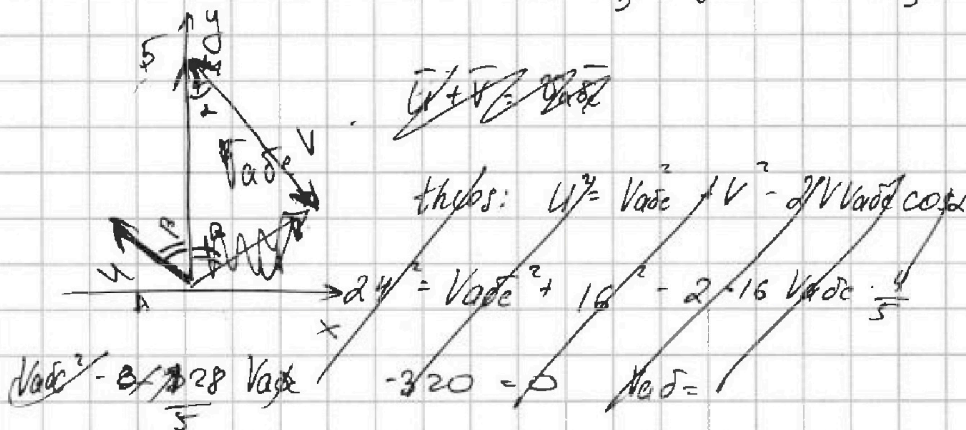 y
5
α
V
Vабс
β β
U
A
x
Ū + V̄ = V̄абс
thcos: U² = Vабс² + V² - 2VVабс cosα
24² = Vабс² + 16² - 2·16 Vабс · 4/5
Vабс² - 128/5 Vабс - 320 = 0 Vаб =